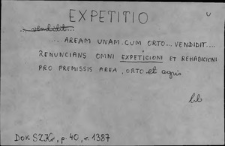 EXPETITIO
vendidit
... AREAM UNAM CUM ORTO... VENDIDIT...
RENUNCIANS OMNI EXPETICIONI ET REHABICIONI
PRO PREMISSIS AREA, ORTO et aquis
Dok 5276, p 40, n 1387